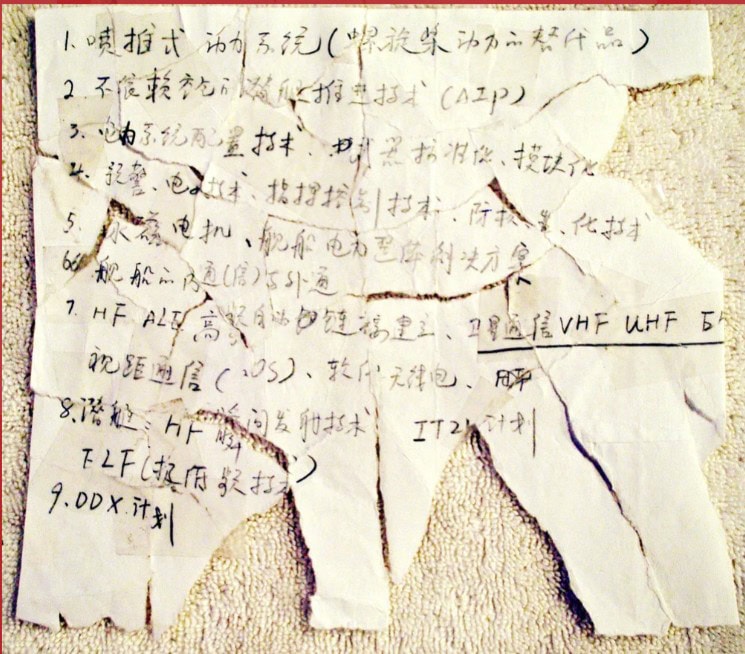 1. 喷推式 动力系统(螺旋桨动力的替代品)
2. 不依赖空气的潜艇推进技术 (AIP)
3. 电力系统配置技术、武器标准化、模块化
4. 预警、电 技术、指挥控制技术、
5. 永磁电机、舰船电力整体解决方案
6 舰船的内通(信)与外通
7. HF ALE 高频自动链 建立、卫星通信 VHF UHF
视距通信( OS)、软件无线电、
8. 潜艇: HF 瞬间发射技术 IT21计划
ELF(极低频技术)
9. DDX 计划